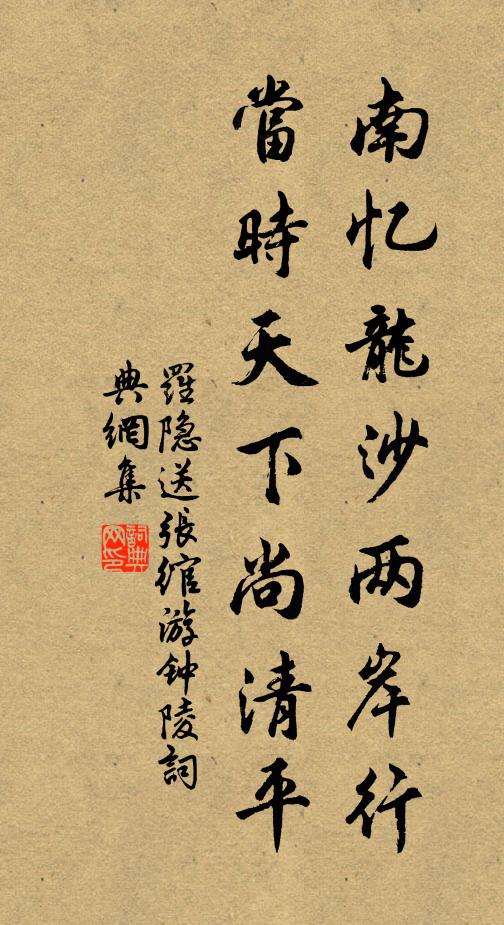 南忆龍沙两岸行
當時天下尚清平
羅隐送張綰游钟陵詞
典網集
詞典网印